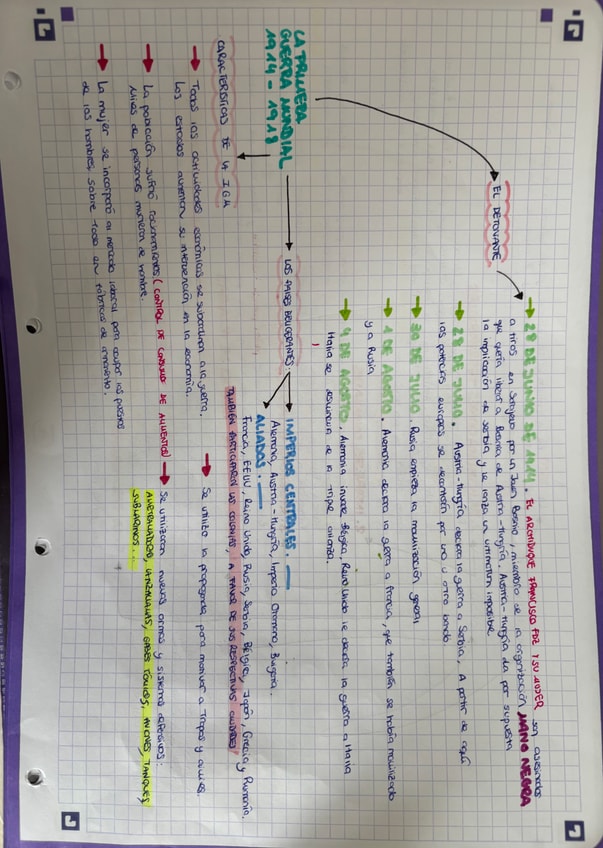 LA PRIMERA
GUERRA MUNDIAL
1914 - 1918
EL DETONANTE
→ 28 DE JUNIO DE 1914. EL ARCHIDUQUE FRANCISCO FDZ Y SU MUJER son asesinados
a tiros en Sarajevo por un Joven Bosnio, miembro de la organización MANO NEGRA
que quería liberar a Bosnia de Austria-Hungría. Austria-Hungría da por supuesta
la implicación de Serbia y se lanza un ultimatum imposible.
→ 28 DE JULIO. Austria-Hungría declara la guerra a Serbia, A partir de aquí
las potencias europeas se decantarán por uno u otro bando
→ 30 DE JULIO Rusia empieza la movilización general
→ 1 DE AGOSTO. Alemania declara la guerra a Francia, que también se había movilizado
y a Rusia
→ 4 DE AGOSTO. Alemania invade Bélgica, Reino Unido le declara la guerra a Italia
Italia se desvincula de la Triple alianza.
LOS PAÍSES BELIGERANTES
IMPERIOS CENTRALES.
Alemania, Austria-Hungría, Imperio Otomano, Bulgaria.
ALIADAS.
Francia, EEUU, Reino Unido, Rusia, Serbia, Bélgica, Japón, Grecia y Rumanía.
TAMBIEN PARTICIPARON LAS COLONIAS, A FAVOR DE SUS RESPECTIVAS
CARACTERÍSTICAS DE LA IGM
→ Todas las actividades económicas se subordinan a la guerra.
Los estados aumentan su intervención en la economía.
→ La población sufrió racionamientos (CONTROL DE CONSUMO DE ALIMENTOS)
Miles de personas murieron de hambre.
→ La mujer se incorporó al mercado laboral para ocupar los puestos
de los hombres, sobre todo en fábricas de armamento.
→ Se utilizó la propaganda para motivar a Tropas y civiles.
→ Se utilizaron nuevas armas y sistemas defensivos:
AMETRALLADORAS, LANZALLAMAS, GASES TÓXICOS, AVIONES, TANQUES,
SUBMARINOS...